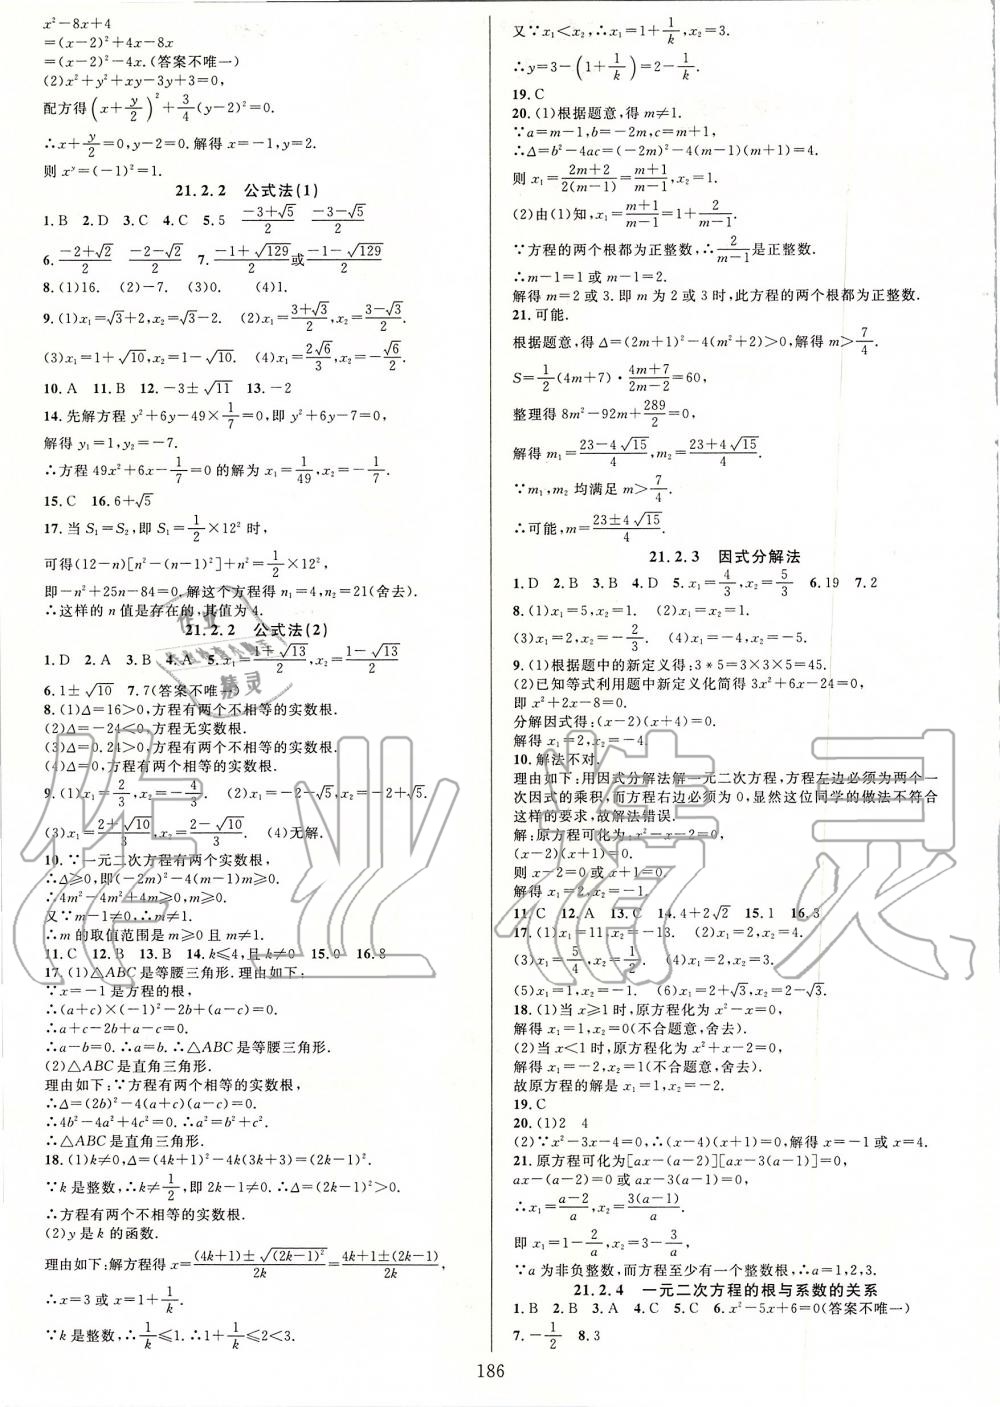 x²-8x+4
=(x-2)²+4x-8x
=(x-2)²-4x.(答案不唯一)
(2)x²+y²+xy-3y+3=0.
配方得(x+y/2)²+3/4(y-2)²=0.
∴x+y/2=0,y-2=0.解得 x=-1,y=2.
则 xʸ=(-1)²=1.
21.2.2 公式法(1)
1.B 2.D 3.C 4.C 5.5 (-3+√5)/2 (-3-√5)/2
6.(-2+√2)/2 (-2-√2)/2 7.(-1+√129)/2或(-1-√129)/2
8.(1)16. (2)-7. (3)0. (4)1.
9.(1)x₁=√3+2,x₂=√3-2. (2)x₁=(3+√3)/2,x₂=(3-√3)/2.
(3)x₁=1+√10,x₂=1-√10. (4)x₁=2√6/3,x₂=-√6/2.
10.A 11.B 12.-3±√11 13.-2
14.先解方程 y²+6y-49×1/7=0,即 y²+6y-7=0.
解得 y₁=1,y₂=-7.
∴方程 49x²+6x-1/7=0 的解为 x₁=1/49,x₂=-1/7.
15.C 16.6+√5
17.当 S₁=S₂,即 S₁=1/2×12² 时,
可得(12-n)[n²-(n-1)²]+n²=1/2×12²,
即-n²+25n-84=0.解这个方程得 n₁=4,n₂=21(舍去).
∴这样的 n 值是存在的,其值为 4.
21.2.2 公式法(2)
1.D 2.A 3.B 4.A 5.x₁=(1+√13)/2,x₂=(1-√13)/2
6.1±√10 7.7(答案不唯一)
8.(1)Δ=16>0,方程有两个不相等的实数根.
(2)Δ=-24<0,方程无实数根.
(3)Δ=0.24>0,方程有两个不相等的实数根.
(4)Δ=0,方程有两个相等的实数根.
9.(1)x₁=2/3,x₂=-4/3. (2)x₁=-2-√5,x₂=-2+√5.
(3)x₁=(2+√10)/3,x₂=(2-√10)/3. (4)无解.
10.∵一元二次方程有两个实数根,
∴Δ≥0,即(-2m)²-4(m-1)m≥0.
∴4m²-4m²+4m≥0,∴m≥0.
又∵m-1≠0,∴m≠1.
∴m 的取值范围是 m≥0 且 m≠1.
11.C 12.B 13.B 14.k≤4,且 k≠0 15.0 16.8
17.(1)△ABC 是等腰三角形.理由如下:
∵x=-1 是方程的根,
∴(a+c)×(-1)²-2b+(a-c)=0.
∴a+c-2b+a-c=0.
∴a-b=0.∴a=b.∴△ABC 是等腰三角形.
(2)△ABC 是直角三角形.
理由如下:∵方程有两个相等的实数根,
∴Δ=(2b)²-4(a+c)(a-c)=0.
∴4b²-4a²+4c²=0.∴a²=b²+c².
∴△ABC 是直角三角形.
18.(1)k≠0,Δ=(4k+1)²-4k(3k+3)=(2k-1)².
∵k 是整数,∴k≠1/2,即 2k-1≠0.∴Δ=(2k-1)²>0.
∴方程有两个不相等的实数根.
(2)y 是 k 的函数.
理由如下:解方程得 x=((4k+1)±√(2k-1)²)/2k=(4k+1±(2k-1))/2k,
∴x=3 或 x=1+1/k.
∵k 是整数,∴1/k≤1.∴1+1/k≤2<3.
又∵x₁<x₂,∴x₁=1+1/k,x₂=3.
∴y=3-(1+1/k)=2-1/k.
19.C
20.(1)根据题意,得 m≠1.
∵a=m-1,b=-2m,c=m+1,
∴Δ=b²-4ac=(-2m)²-4(m-1)(m+1)=4.
则 x₁=(2m+2)/2(m-1)=(m+1)/(m-1),x₂=1.
(2)由(1)知,x₁=(m+1)/(m-1)=1+2/(m-1).
∵方程的两个根都为正整数,∴2/(m-1)是正整数.
∴m-1=1 或 m-1=2.
解得 m=2 或 3.即 m 为 2 或 3 时,此方程的两个根都为正整数.
21.可能.
根据题意,得 Δ=(2m+1)²-4(m²+2)>0,解得 m>7/4.
S=1/2(4m+7)·(4m+7)/(2m-2)=60,
整理得 8m²-92m+289/2=0.
解得 m₁=(23-4√15)/4,m₂=(23+4√15)/4.
∵m₁,m₂ 均满足 m>7/4.
∴可能,m=(23±4√15)/4.
21.2.3 因式分解法
1.D 2.B 3.B 4.D 5.x₁=4/3,x₂=5/3 6.19 7.2
8.(1)x₁=5,x₂=1. (2)x₁=x₂=1.
(3)x₁=2,x₂=-2/3. (4)x₁=x₂=-5.
9.(1)根据题中的新定义得:3*5=3×3×5=45.
(2)已知等式利用题中新定义化简得 3x²+6x-24=0,
即 x²+2x-8=0.
分解因式得:(x-2)(x+4)=0.
解得 x₁=2,x₂=-4.
10.解法不对.
理由如下:用因式分解法解一元二次方程,方程左边必须为两个一
次因式的乘积,而方程右边必须为 0,显然这位同学的做法不符合
这样的要求,故解法错误.
解:原方程可化为:x²-x-2=0.
(x-2)(x+1)=0.
则 x-2=0 或 x+1=0.
解得 x₁=2,x₂=-1.
11.C 12.A 13.C 14.4+2√2 15.1 16.3
17.(1)x₁=11,x₂=-13. (2)x₁=-1,x₂=-2.
(3)x₁=5/4,x₂=1/2.
(5)x₁=x₂=-1. (6)x₁=2+√3,x₂=-2+√3.
18.(1)当 x≥1 时,原方程化为 x²-x=0.
解得 x₁=1,x₂=0(不合题意,舍去).
(2)当 x<1 时,原方程化为 x²+x-2=0.
解得 x₁=-2,x₂=1(不合题意,舍去).
故原方程的解是 x₁=1,x₂=-2.
19.C
20.(1)2 4
(2)∵x²-3x-4=0,∴(x-4)(x+1)=0,解得 x=-1 或 x=4.
21.原方程可化为[ax-(a-2)][ax-3(a-1)]=0.
ax-(a-2)=0 或 ax-3(a-1)=0,
∴x₁=(a-2)/a,x₂=3(a-1)/a.
即 x₁=1-2/a,x₂=3-3/a.
∵a 为非负整数,而方程至少有一个整数解,∴a=1,2,3.
21.2.4 一元二次方程的根与系数的关系
1.B 2.B 3.A 4.C 5.C 6.x²-5x+6=0(答案不唯一)
7.-1/2 8.3
186
作业精灵